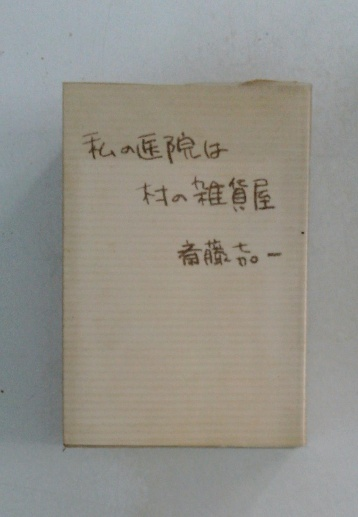 私の医院は
村の雑貨屋
斎藤嘉一